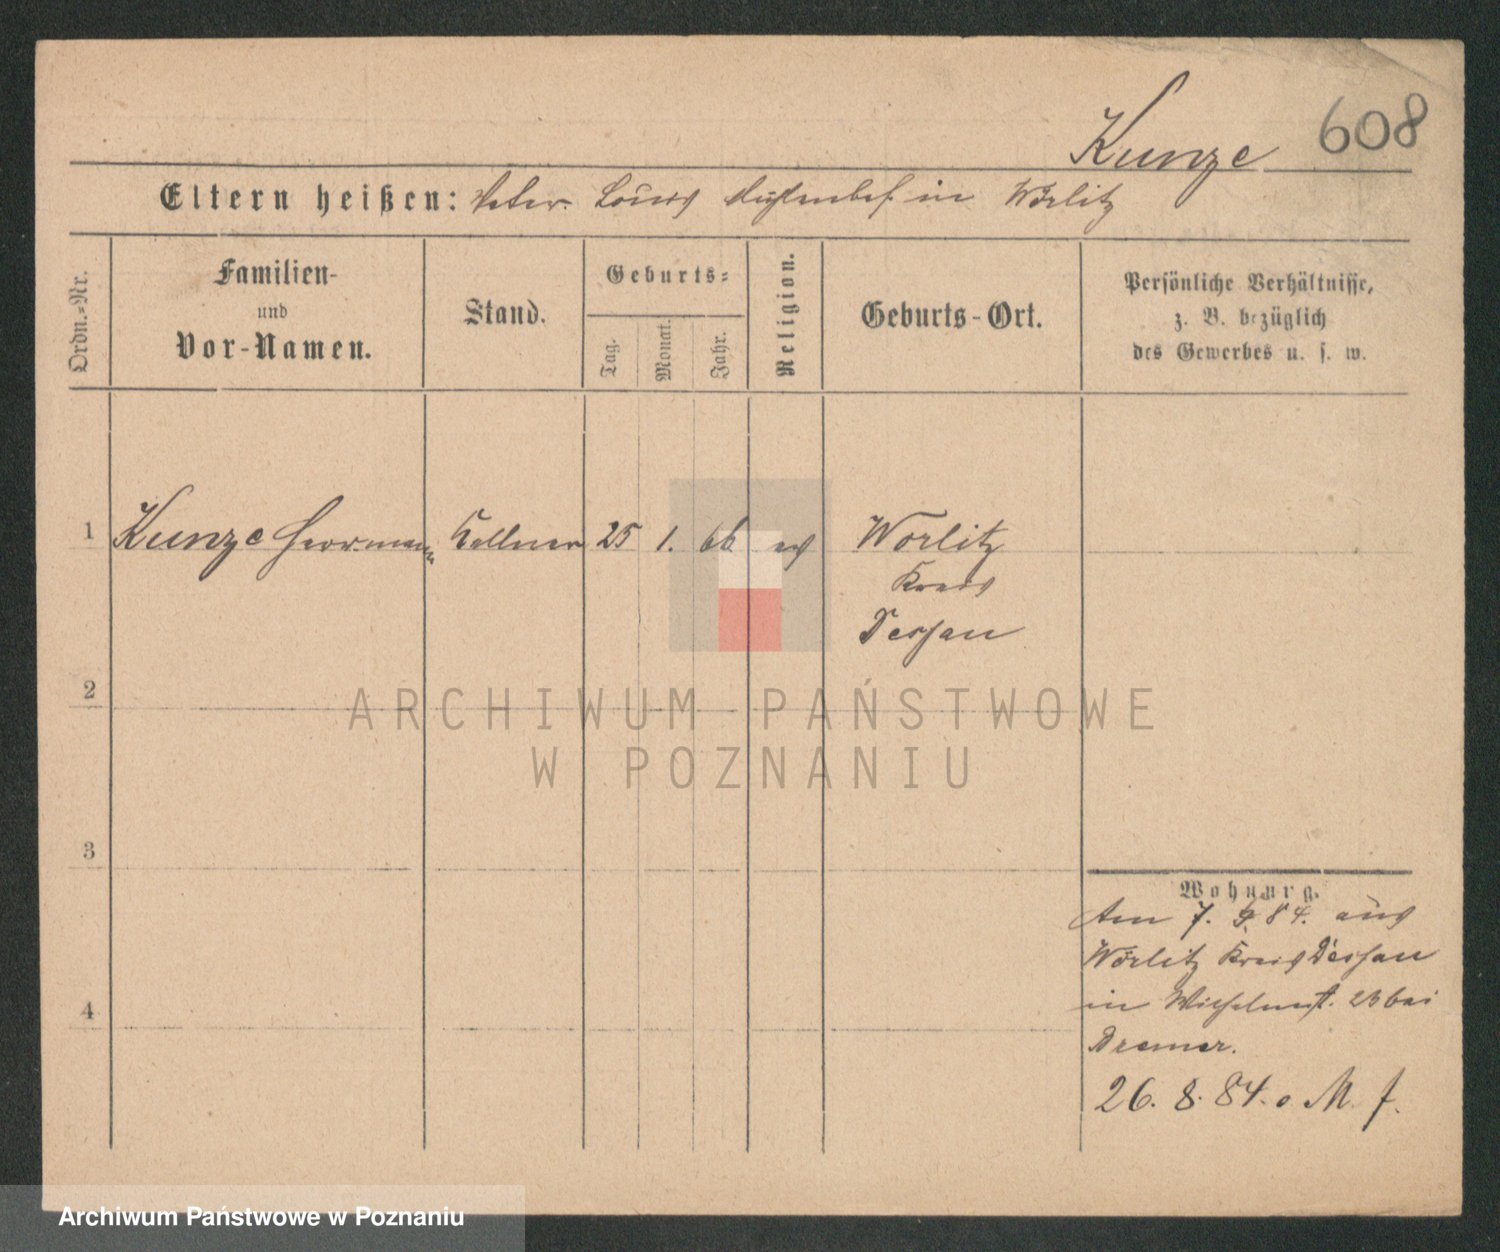 Kunze 608
Eltern heißen: Vater Louis in Wörlitz
Ordn.-Nr.
Familien-
und
Vor-Namen.
Stand.
Geburts-
Tag.
Monat.
Jahr.
Religion.
Geburts-Ort.
Persönliche Verhältnisse,
z. B. bezüglich
des Gewerbes u. s. w.
1 Kunze Herrmann Kellner 25 1. 66 ev Wörlitz
Kreis
Dessau
2
ARCHIWUM PAŃSTWOWE
W POZNANIU
3
Wohnung.
Am 7. 84. aus
Wörlitz Kreis Dessau
in Wilhelmst. 23 bei
Dremer.
4
26. 8. 84. o. M. f.
Archiwum Państwowe w Poznaniu